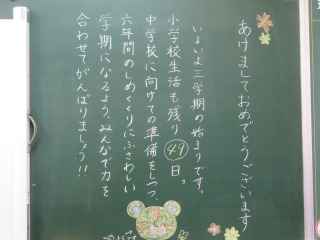 あけましておめでとうございます
いよいよ三学期の始まりです。
小学校生活も残り49日。
中学校に向けての準備をしつつ、
六年間のしめくくりにふさわしい
学期になるよう、みんなで力を
合わせてがんばりましょう!!